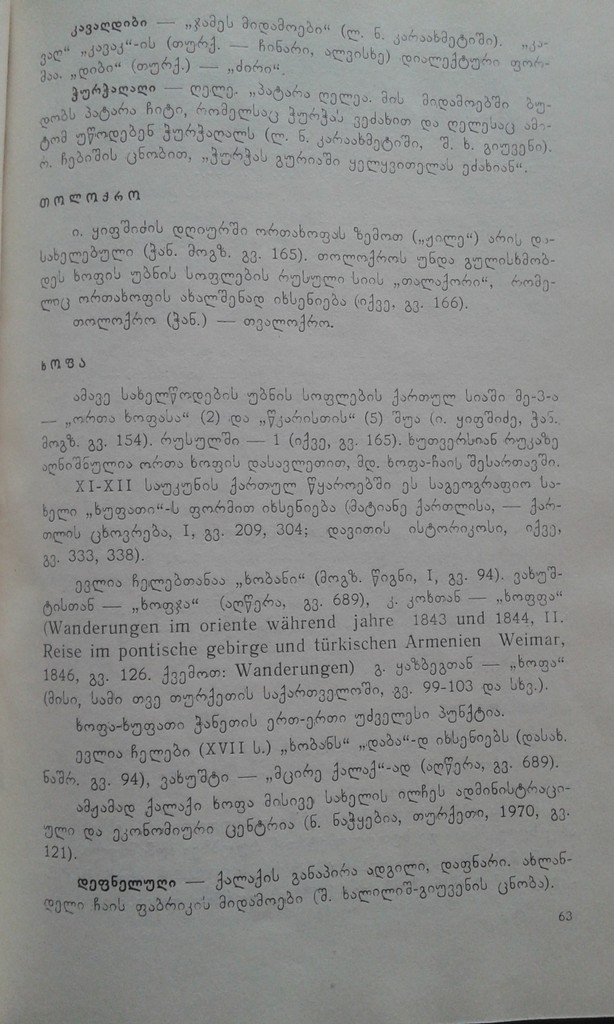 კავაღდიბი — „ჯამეს მიდამოები“ (ლ. ნ. კარაახმეტიში). „კა-
ვაღ“ „კავაკ“-ის (თურქ. — ჩინარი, ალვისხე) დიალექტური ფორ-
მაა. „დიბი“ (თურქ.) — „ძირი“.
ჭურჭაღალი — ღელე. „პატარა ღელეა. მის მიდამოებში ბუ-
დობს პატარა ჩიტი, რომელსაც ჭურჭას ვეძახით და ღელესაც ამი-
ტომ უწოდებენ ჭურჭაღალს (ლ. ნ. კარაახმეტიში, შ. ხ. გიუვენი).
რ. ჩებიშის ცნობით, „ჭურჭას გურიაში ყელყვითელას ეძახიან“.
თოლოქრო
ი. ყიფშიძის დღიურში ორთახოფას ზემოთ („ჟილე“) არის და-
სახელებული (ჭან. მოგზ. გვ. 165). თოლოქროს უნდა გულისხმობ-
დეს ხოფის უბნის სოფლების რუსული სიის „თალაქორი“, რომე-
ლიც ორთახოფის ახალშენად იხსენიება (იქვე, გვ. 166).
თოლოქრო (ჭან.) — თვალოქრო.
ხოფა
ამავე სახელწოდების უბნის სოფლების ქართულ სიაში მე-3-ა
— „ორთა ხოფასა“ (2) და „წკარისთის“ (5) შუა (ი. ყიფშიძე, ჭან.
მოგზ. გვ. 154). რუსულში — 1 (იქვე, გვ. 165). ხუთვერსიან რუკაზე
აღნიშნულია ორთა ხოფის დასავლეთით, მდ. ხოფა-ჩაის შესართავში.
XI-XII საუკუნის ქართულ წყაროებში ეს საგეოგრაფიო სა-
ხელი „ხუფათი“-ს ფორმით იხსენიება (მატიანე ქართლისა, — ქარ-
თლის ცხოვრება, I, გვ. 209, 304; დავითის ისტორიკოსი, იქვე,
გვ. 333, 338).
ევლია ჩელებთანაა „ხობანი“ (მოგზ. წიგნი, I, გვ. 94). ვახუშ-
ტისთან — „ხოფჯა“ (აღწერა, გვ. 689), კ. კოხთან — „ხოფფა“
(Wanderungen im oriente während jahre 1843 und 1844, II.
Reise im pontische gebirge und türkischen Armenien Weimar,
1846, გვ. 126. ქვემოთ: Wanderungen) გ. ყაზბეგთან — „ხოფა“
(მისი, სამი თვე თურქეთის საქართველოში, გვ. 99-103 და სხვ.).
ხოფა-ხუფათი ჭანეთის ერთ-ერთი უძველესი პუნქტია.
ევლია ჩელები (XVII ს.) „ხობანს“ „დაბა“-დ იხსენიებს (დასახ.
ნაშრ. გვ. 94), ვახუშტი — „მცირე ქალაქ“-ად (აღწერა, გვ. 689).
ამჟამად ქალაქი ხოფა მისივე სახელის ილჩეს ადმინისტრაცი-
ული და ეკონომიური ცენტრია (ნ. ნაჭყებია, თურქეთი, 1970, გვ.
121).
დეფნელუღი — ქალაქის განაპირა ადგილი, დაფნარი. ახლან-
დელი ჩაის ფაბრიკის მიდამოები (შ. ხალილიშ-გიუვენის ცნობა).
63